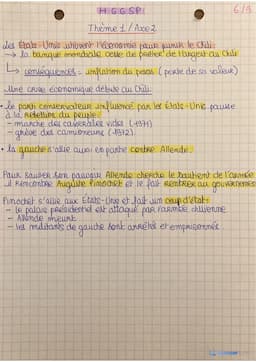 HGGSP 6/9
Thème 1 / Axe 2
Les États-Unis utilisent l'économie pour punir le Chili:
→ la banque mondiale cesse de prêter de l'argent au Chili
↳ conséquences = inflation du pesos (perte de sa valeur)
Une crise économique débute au Chili:
• Le parti conservateur influencé par les États-Unis pousse
à la révolte du peuple:
- marche des casseroles vides (1971)
- grève des camionneurs (1972)
• la gauche s'allie aussi en partie contre Allende.
Pour sauver son pouvoir Allende cherche le soutient de l'armée
il rencontre Auguste Pinochet et le fait rentrer au gouvernement
Pinochet s'allie aux États-Unis et fait un coup d'état:
- le palais présidentiel est attaqué par l'armée chilienne
- Allende meurt
- les militants de gauche sont arrêtés et emprisonnés